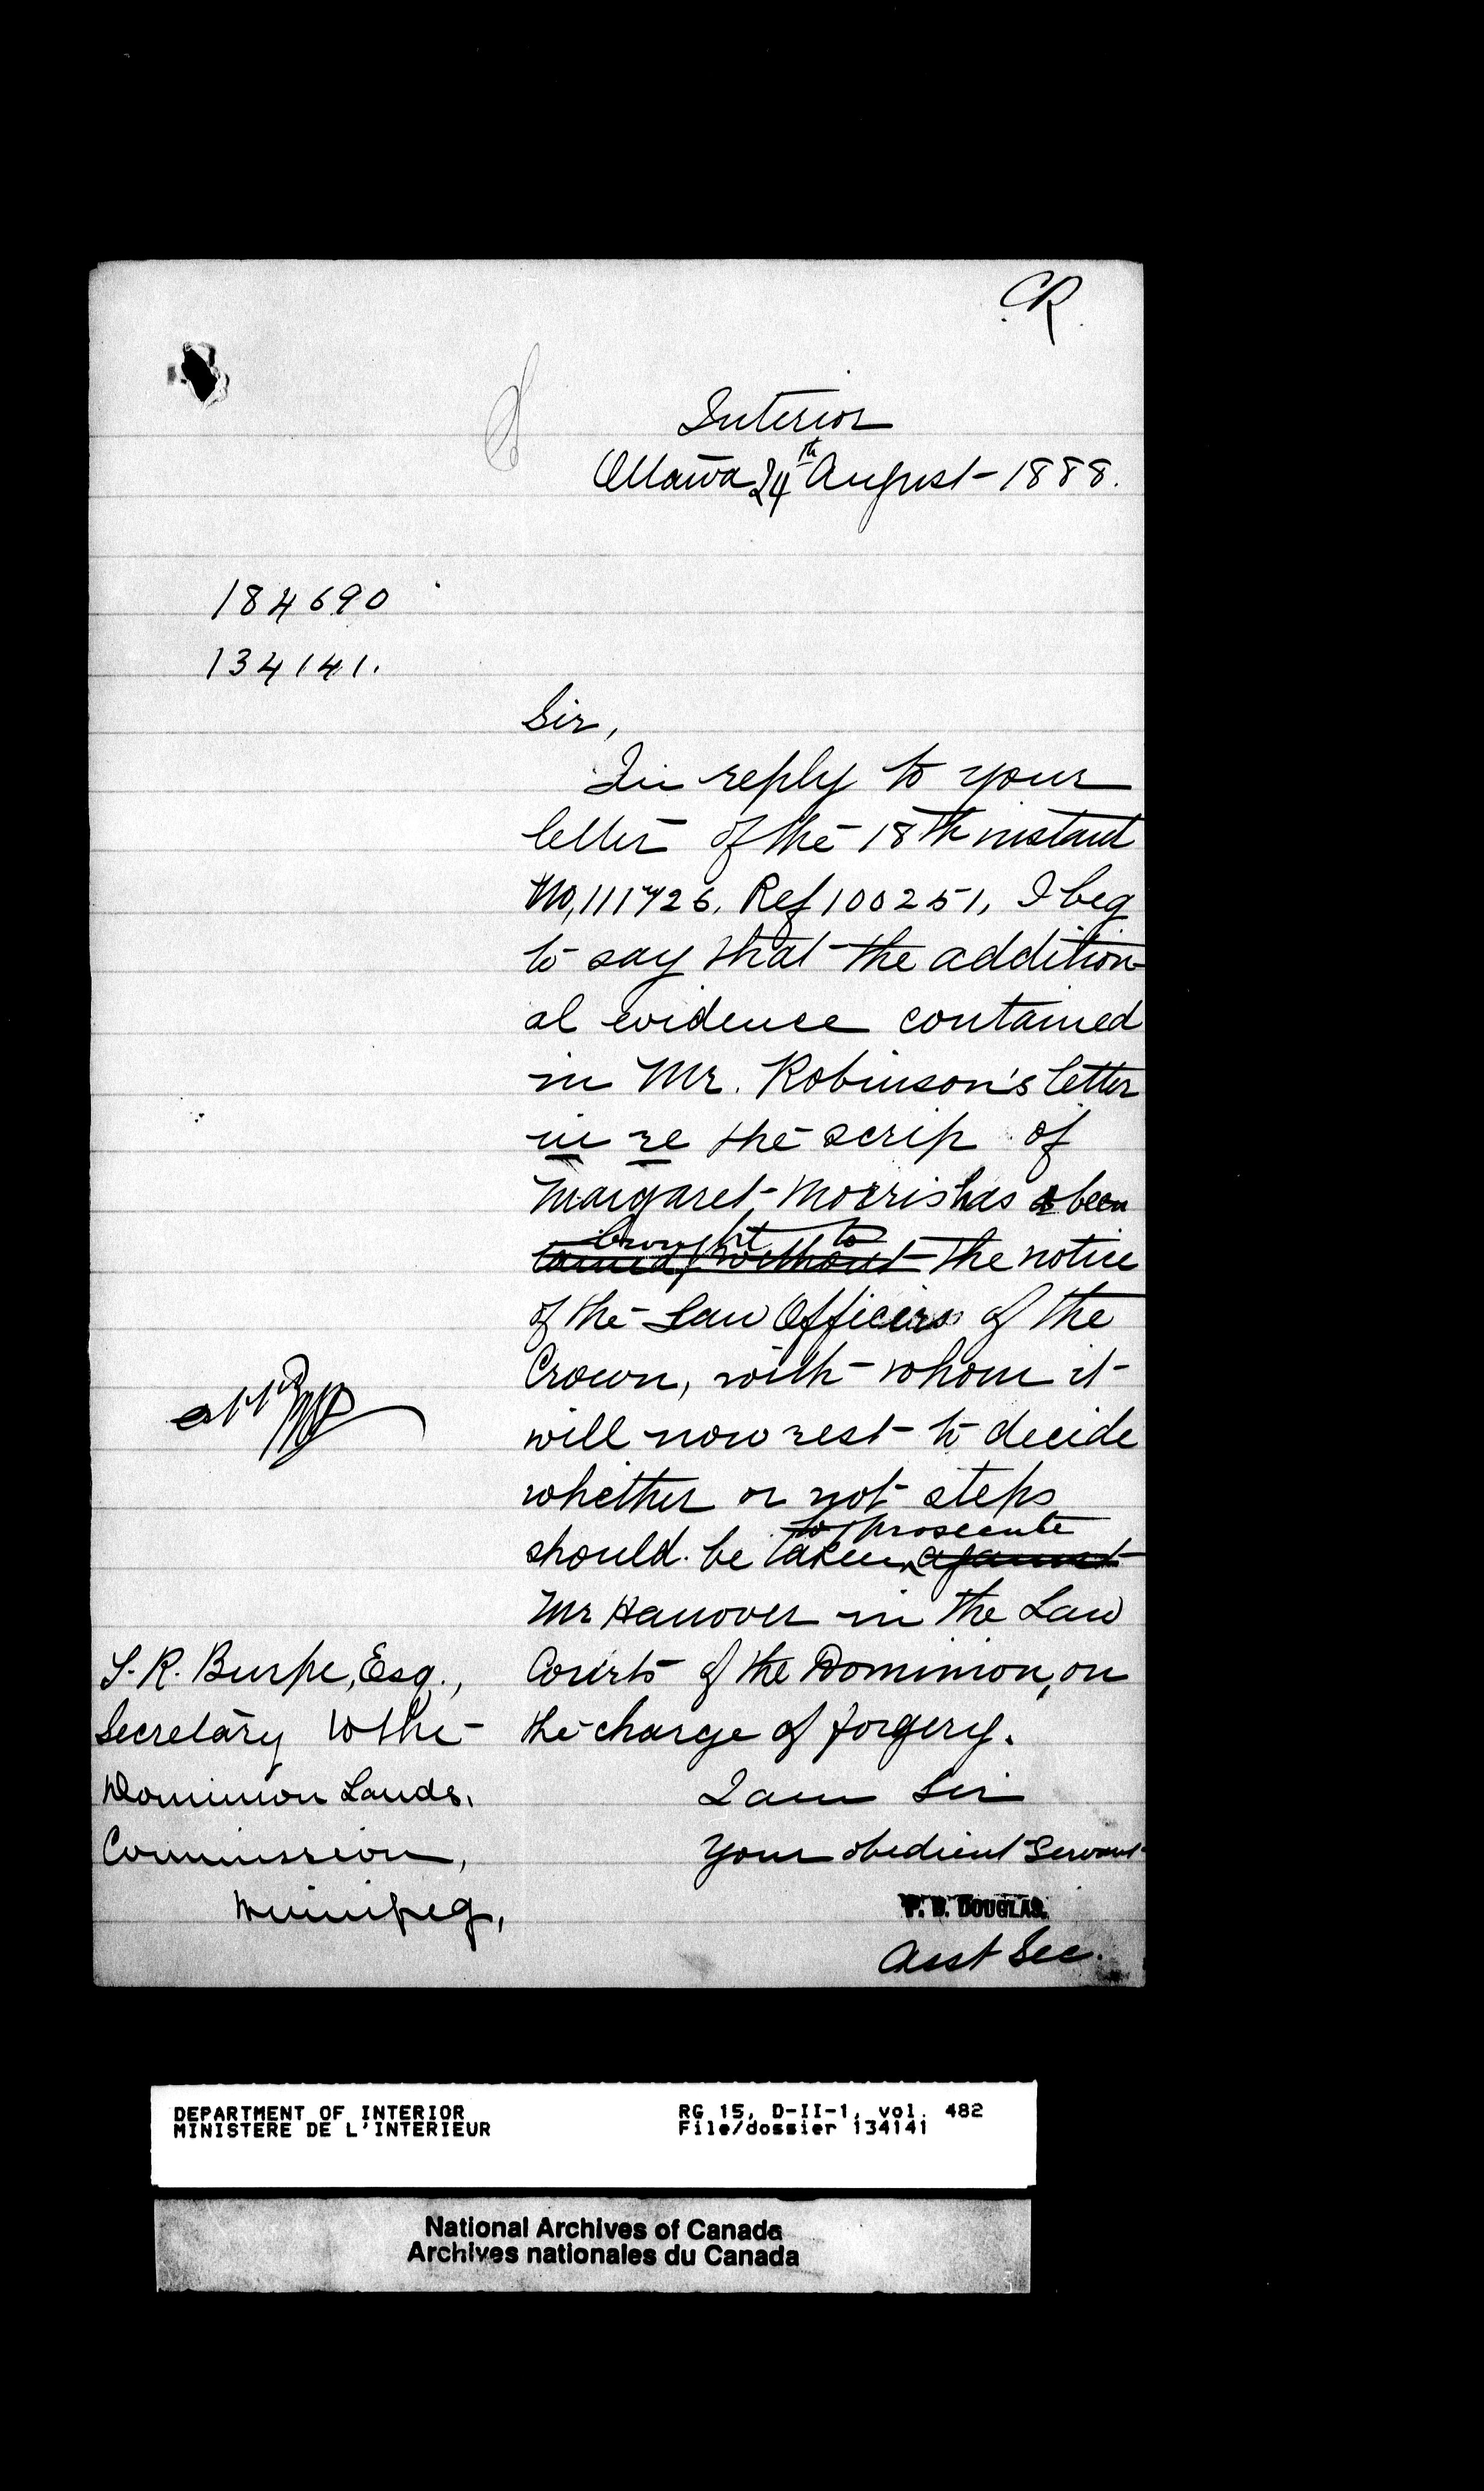 CR
Interior
Ottawa 24th August 1888.
184690
134141.
Sir,
In reply to your
letter of the 18th instant
No, 111726. Ref 100251, I beg
to say that the addition-
al evidence contained
in Mr. Robinson's letter
in re the scrip of
Margaret Morris has been
brought to
the notice
of the Law Officers of the
Crown, with whom it
will now rest to decide
whether or not steps
to prosecute
should be taken against
Mr Hanover in the Law
Courts of the Dominion, on
the charge of forgery.
I am Sir
Your obedient Servant
P. B. DOUGLAS.
Asst Sec.
S. R. Burpe, Esq.,
Secretary to the
Dominion Lands,
Commission,
Winnipeg,
DEPARTMENT OF INTERIOR
MINISTERE DE L'INTERIEUR
RG 15, D-II-1, vol. 482
File/dossier 134141
National Archives of Canada
Archives nationales du Canada